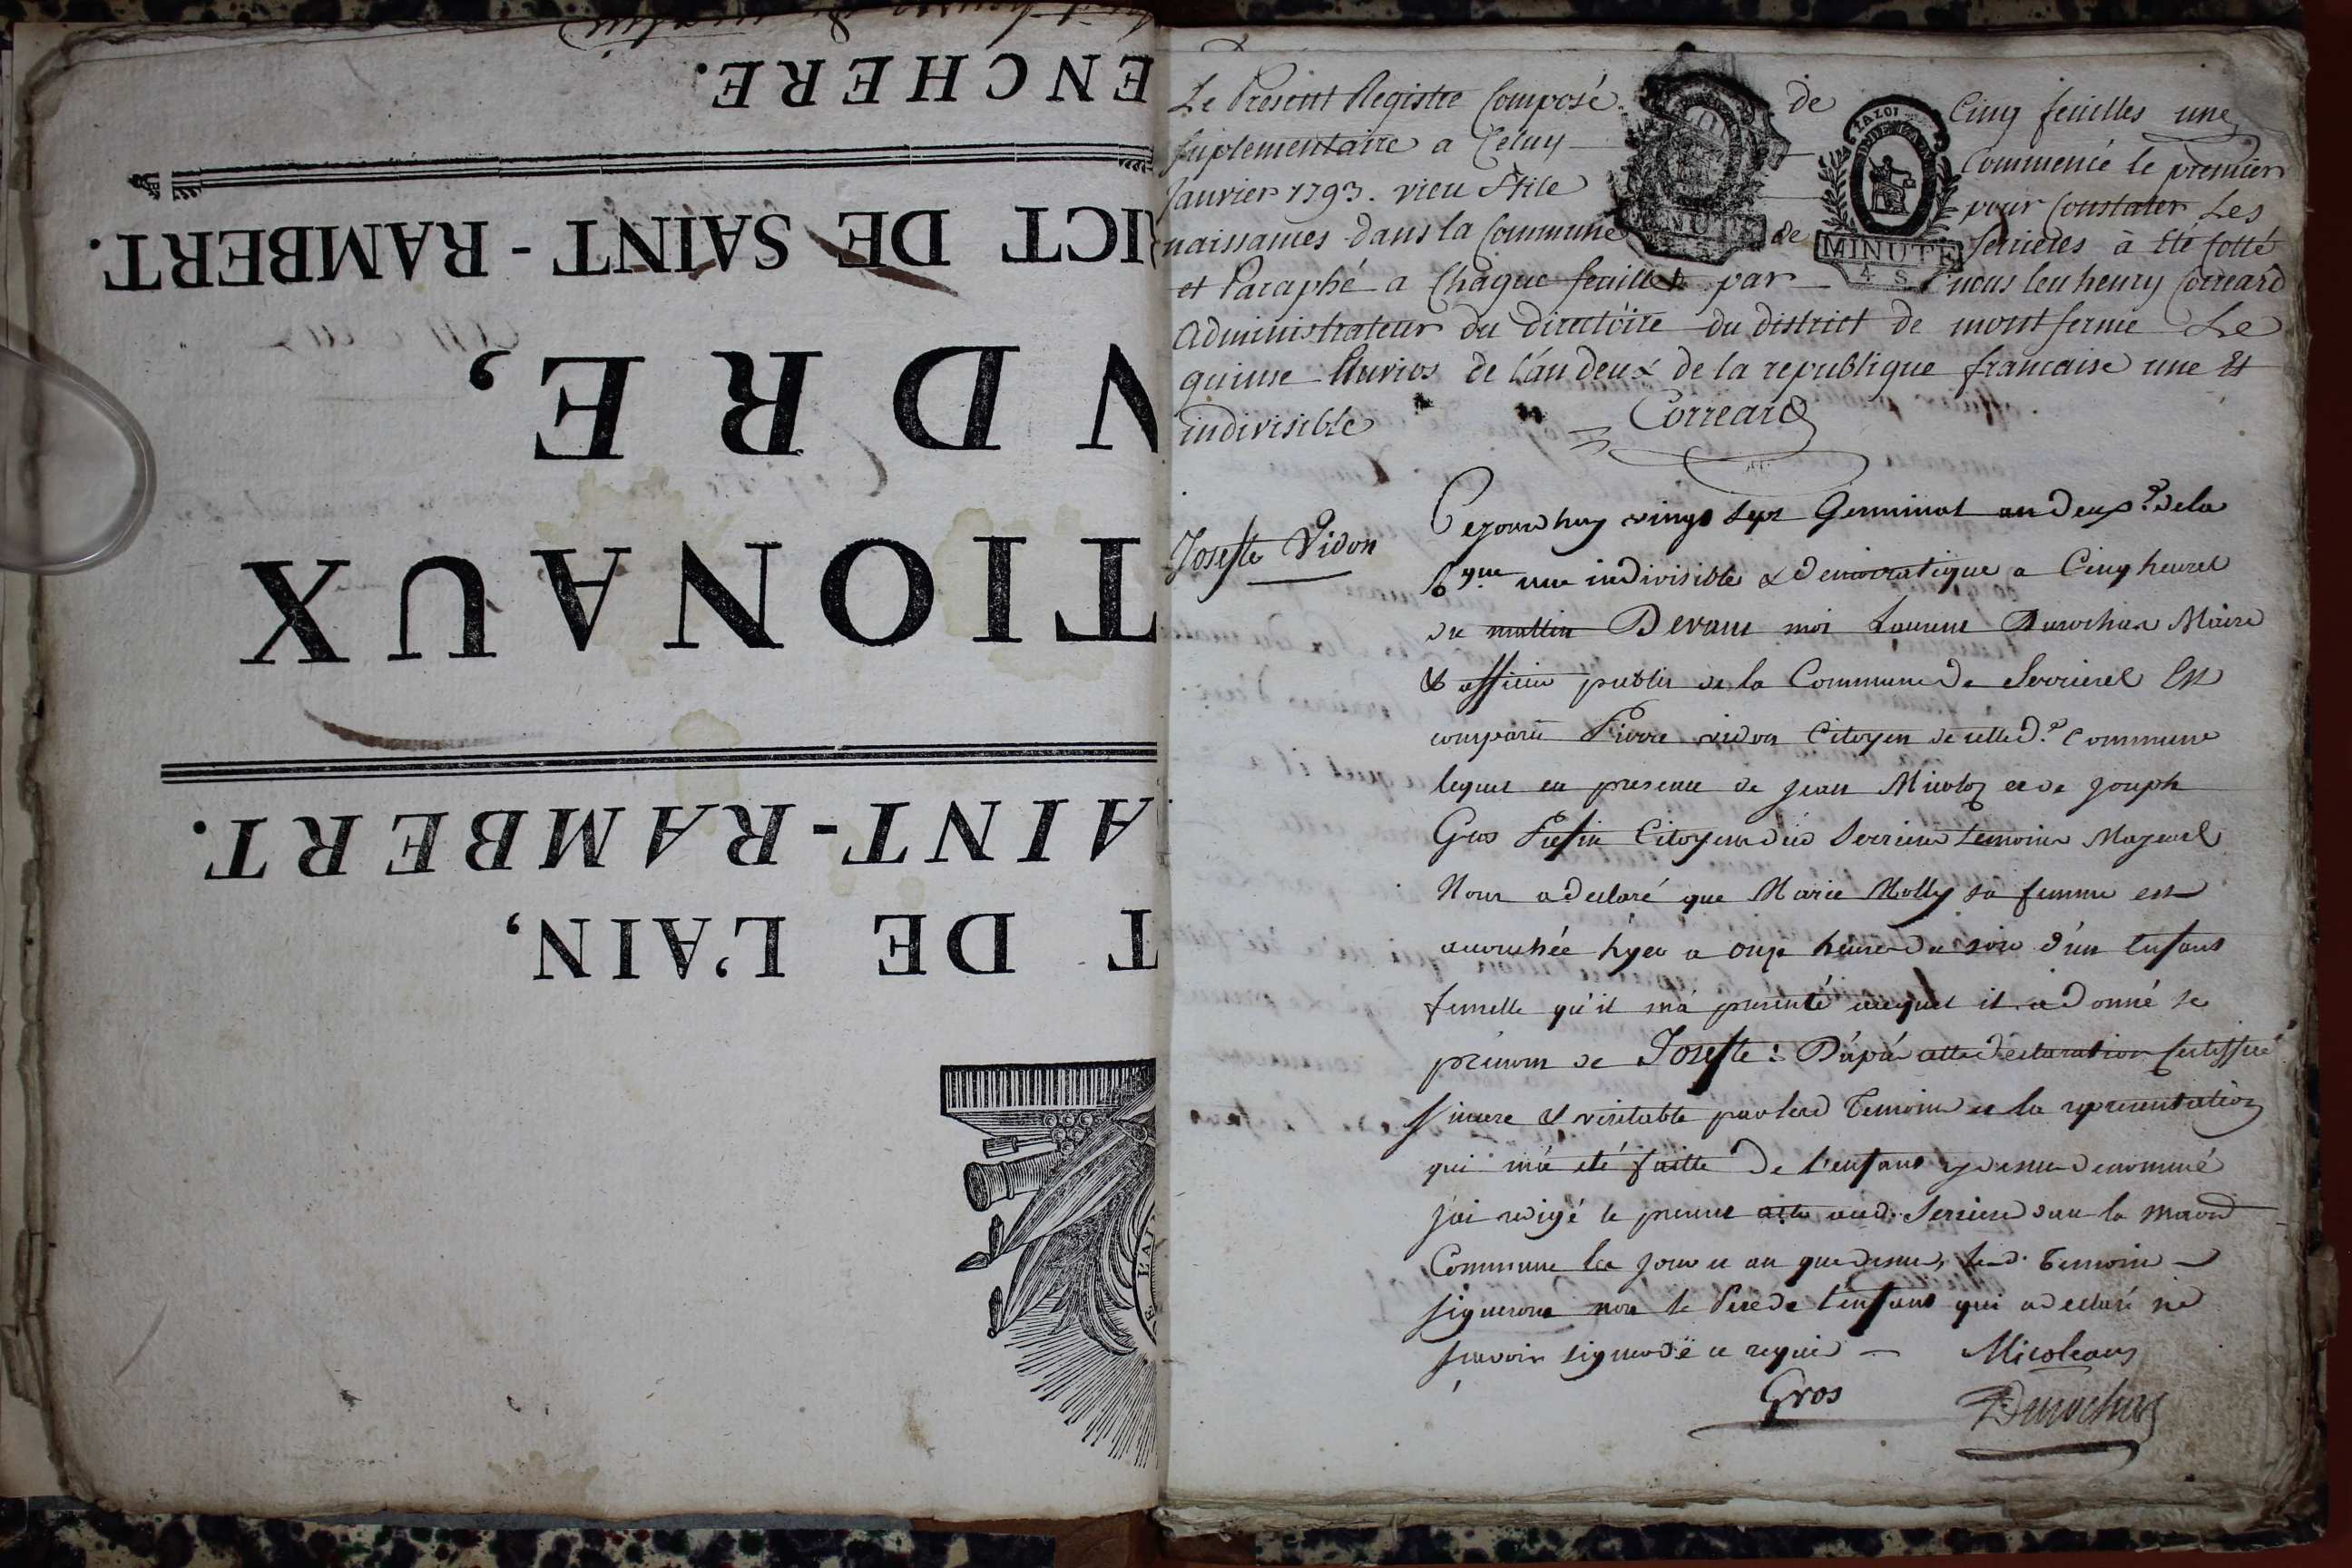 ENCHERE.
RICT DE SAINT-RAMBERT.
VDRE,
TIONAUX
AINT-RAMBERT.
T DE L'AIN,
Le Present Registre Composé de Cinq feuilles une
suplementaire a Celuy Commencé le premier
Janvier 1793. vieu Stile pour Constater Les
naissances dans la Commune de Serieres à Eté Cotté
et Paraphé a Chaque feuillet par nous leu henry Correard
Administrateur du directoire du district de montferme Le
quinse Pluvios de l'án deux de la republique francaise une Et
indivisible
Correard
LA LOI
MINUTE
4. S.
MINUTE
Josefte Vidon
Cejourdhuy vingt sept Germinal an deux.e de la
Rque une indivisible & democratique a Cinq heures
du mattin Devant moi Laurent Durochat Maire
& officier public de la Commune de Serrieres Est
comparû Pierre vidon Citoyen de cette d.e Commune
lequel en presence de Jean Micoloz et de Joseph
Gros Citoyens dud Serrieres temoins Majeurs
Nous a declaré que Marie Molly sa femme est
accouchée hyer a onze heures du soir d'un Enfant
femelle qu'il m'a presenté auquel il a donné le
prénom de Josefte : D'après cette declaration Certiffiée
sincere & veritable par lesd Temoins et la representation
qui m'a eté faitte De l'enfant cy dessus denommé
J'ai redigé le present acte aud. Serrieres dans la maison
Commune les Jour et an que dessus, lesd. temoins
signeront non le Pere de l'enfant qui a declaré ne
scavoir signer de ce requis — Micoleaus
Gros Durochat